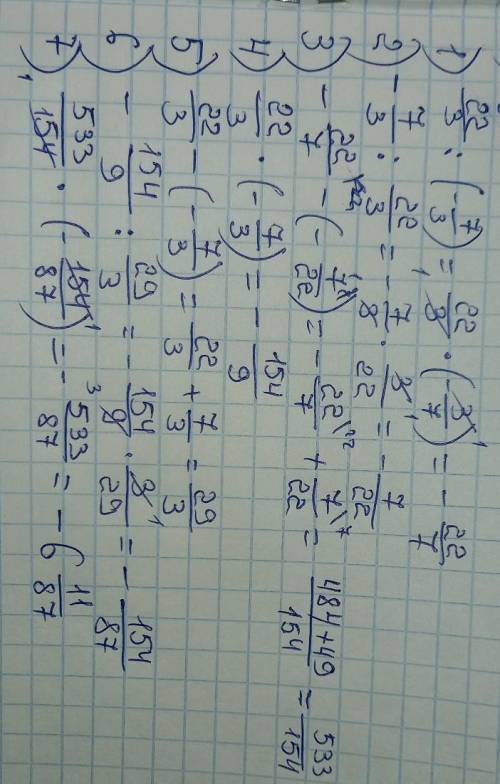 1) 22/3 : (-7/3) = 22/3 · (-3/7) = -22/7
2) -7/3 : 22/3 = -7/3 · 3/22 = -7/22
3) -22/7 - (-7/22) = -22/7 + 7/22 = 484+49/154 = 533/154
4) 22/3 · (-7/3) = -154/9
5) 22/3 - (-7/3) = 22/3 + 7/3 = 29/3
6) -154/9 : 29/3 = -154/9 · 3/29 = -154/87
7) 533/154 · (-154/87) = -533/87 = -6 11/87